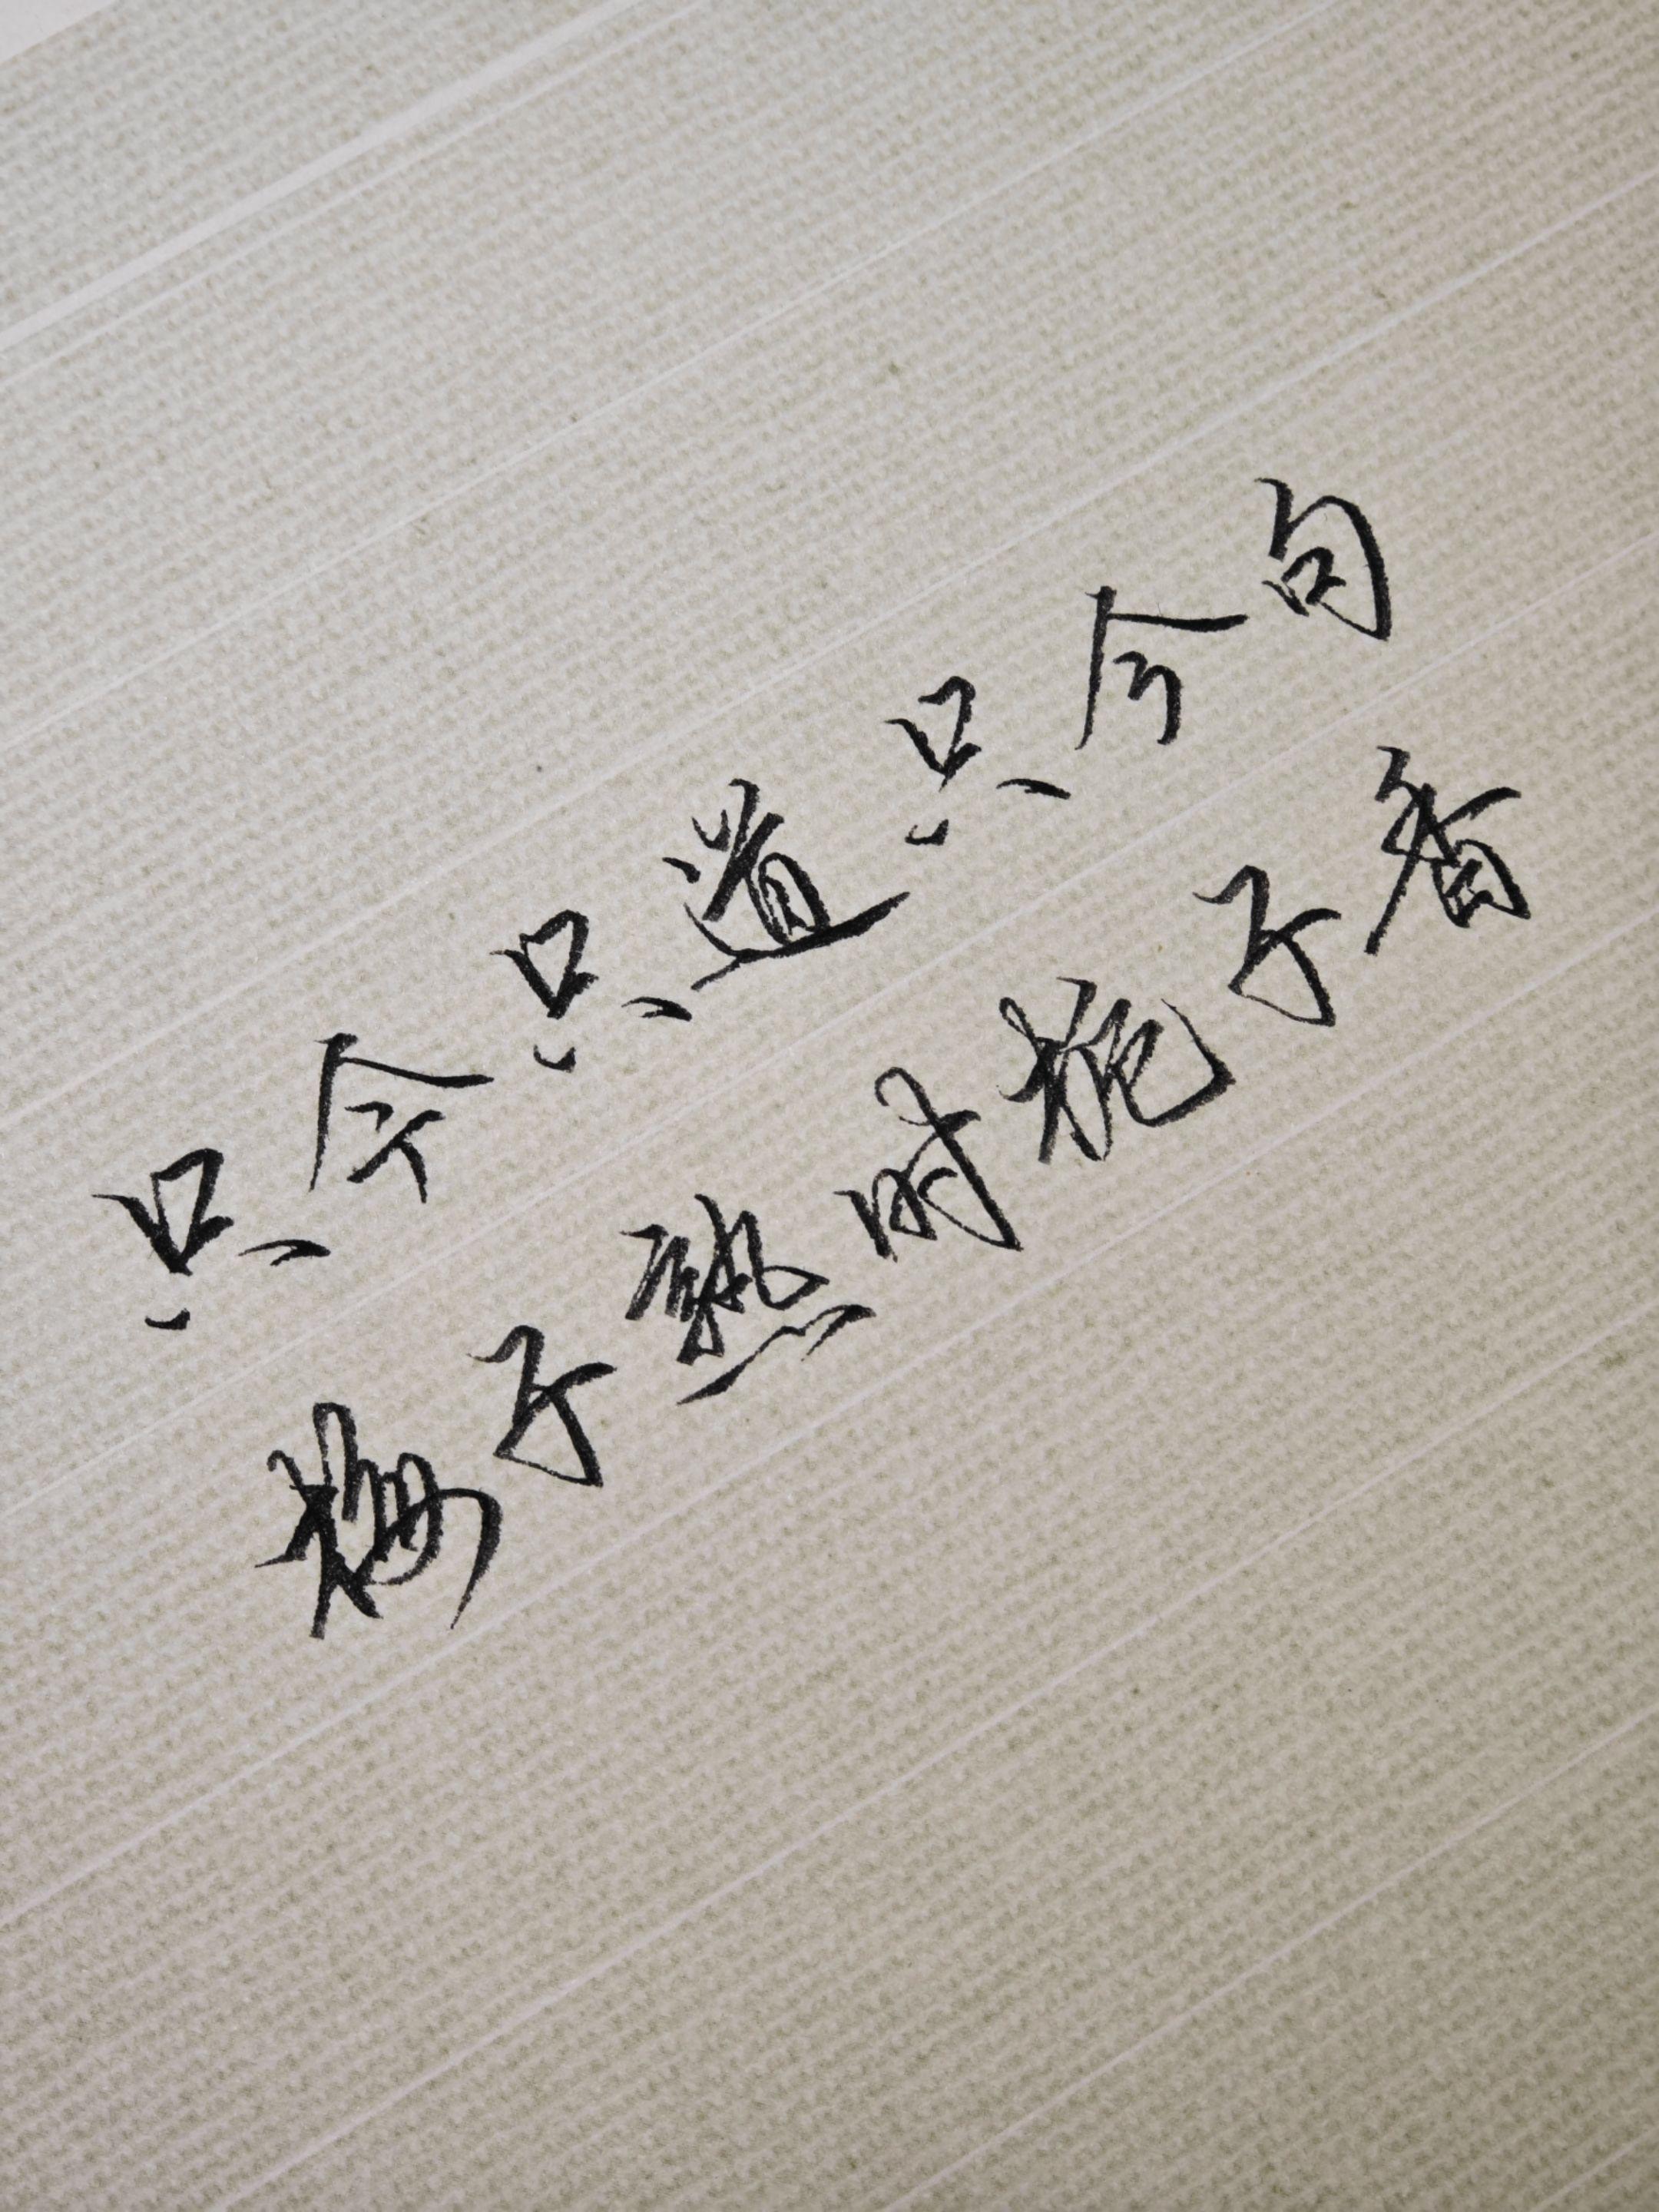 只今只道只今句
梅子熟时栀子香